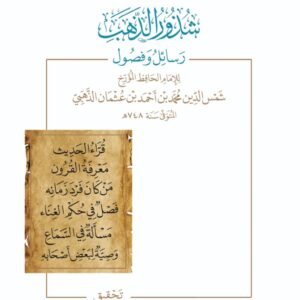 شذور الذهب
رسائل وفصول
للإمام الحافظ المؤرخ
شمس الدين محمد بن أحمد بن عثمان الذهبي
المتوفى سنة ٧٤٨هـ
قراء الحديث
معرفة القرون
من كان فرد زمانه
فصل في حكم الغناء
مسألة في السماع
وصية لبعض أصحابه
تحقيق